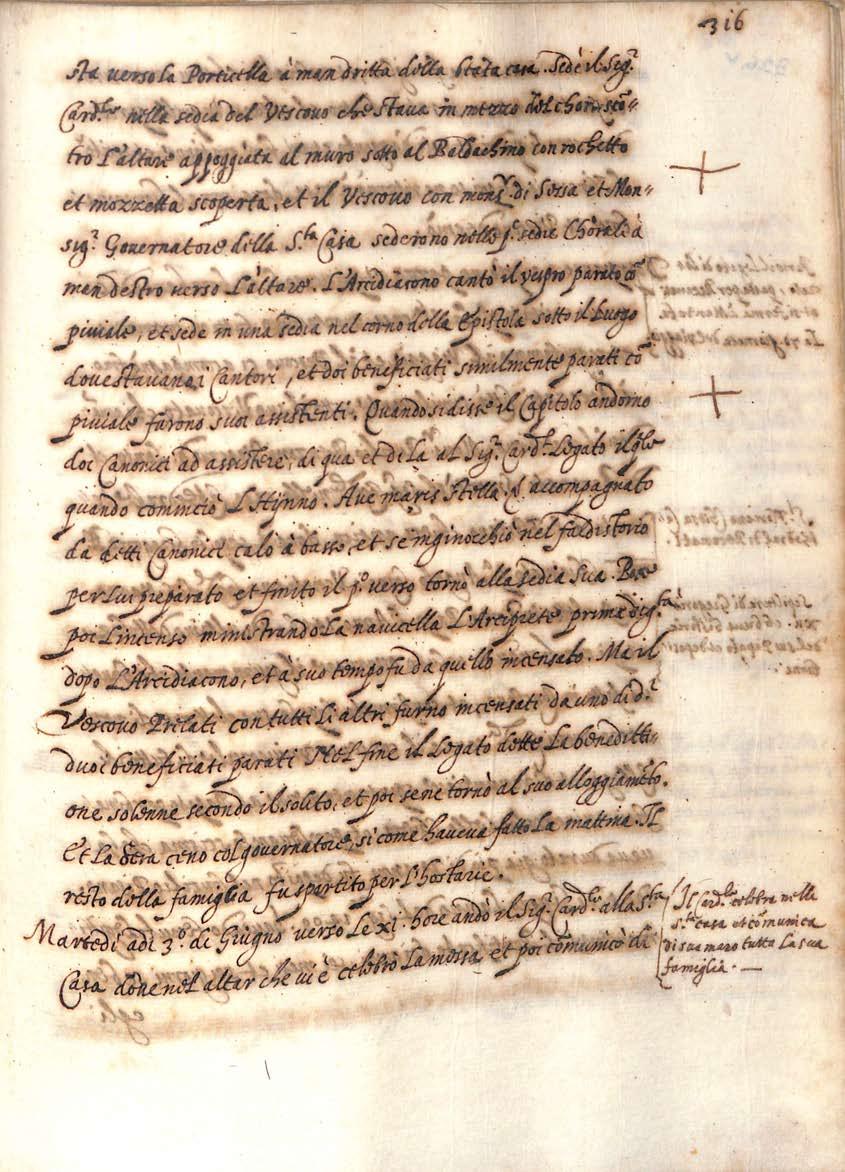 316
sta verso la Porticella à man dritta della stàta casa. Sedè il Sig.r
Card.le nella sedia del Vescovo che stava in mezzo del choro, scõ-
tro L'altare appoggiata al muro sotto al Baldachino con rochetto
et mozzetta scoperta, et il Vescovo con mons.r di Sessa et Mon-
sig.r Governatore della S.ta Casa sederono nelle p.e sedie Chorali à
man destro verso L'altare. L'Arcidiacono cantò il vespro parato cõ
piviale, et sede in una sedia nel corno della Epistola sotto il luogo
dove stavano i Cantori, et doi beneficiati similmente parati cõ
piviale furono suoi assistenti. Quando si disse il Capitolo andorno
doi Canonici ad assistere, di qua et di La al Sig.r Card.l Legato il qle
quando cominciò L'Hynno. Ave maris stella. accompagnato
da detti Canonici calò à basso, et s'e inginocchiò nel faldistorio
per Lui preparato et finito il p.o verso tornò alla sedia sua.
poi L'incenso ministrando La navicella L'Arciprete prima dig.tà
dopo L'Arcidiacono, et à suo tempo fu da quello incensato. Ma il
Vescovo Prelati con tutti li altri furno incensati da uno di d.i
duoi beneficiati parati Nel fine il Legato dette La beneditti-
one solenne secondo il solito, et poi se ne tornò al suo alloggiamẽto.
Et La sera ceno col governatore, si come haveva fatto La mattina. Il
resto della famiglia fu spartito per L'hostarie.
Martedi adi 3.o di Giugno verso Le xi. hore andò il Sig.r Card.le alla S.ta
Casa dove nel altar che vi è celebrò La messa, et poi cõmunicò di
egli
Il Card.le celebra nella
S.ta casa et cõmunica
di sua mano tutta La sua
famiglia.